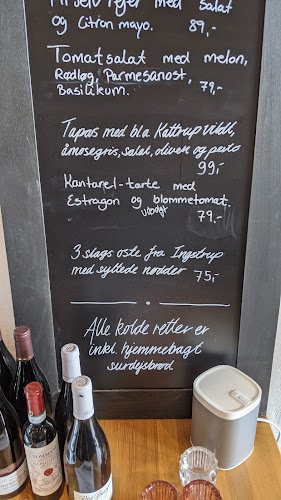 rejer med salat
og Citron mayo. 89,-
Tomatsalat med melon,
Rødløg, Parmesanost,
Basilikum. 79,-
Tapas med bla Kattrup vildt,
åmosegris, salat, oliven og pesto
99,-
Kantarel-tarte med
Estragon og blommetomat.
79,-
3 slags oste fra Ingstrup
med syltede nødder 75,-
Alle kolde retter er
inkl. hjemmebagt
surdejsbrød